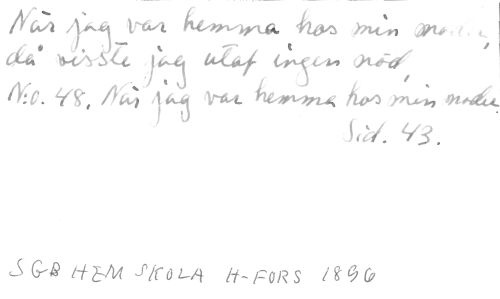 När jag var hemma hos min moder,
då visste jag utaf ingen nöd,
N:o. 48. När jag var hemma hos min moder.
Sid. 43.
SGB HEM SKOLA H-FORS 1896